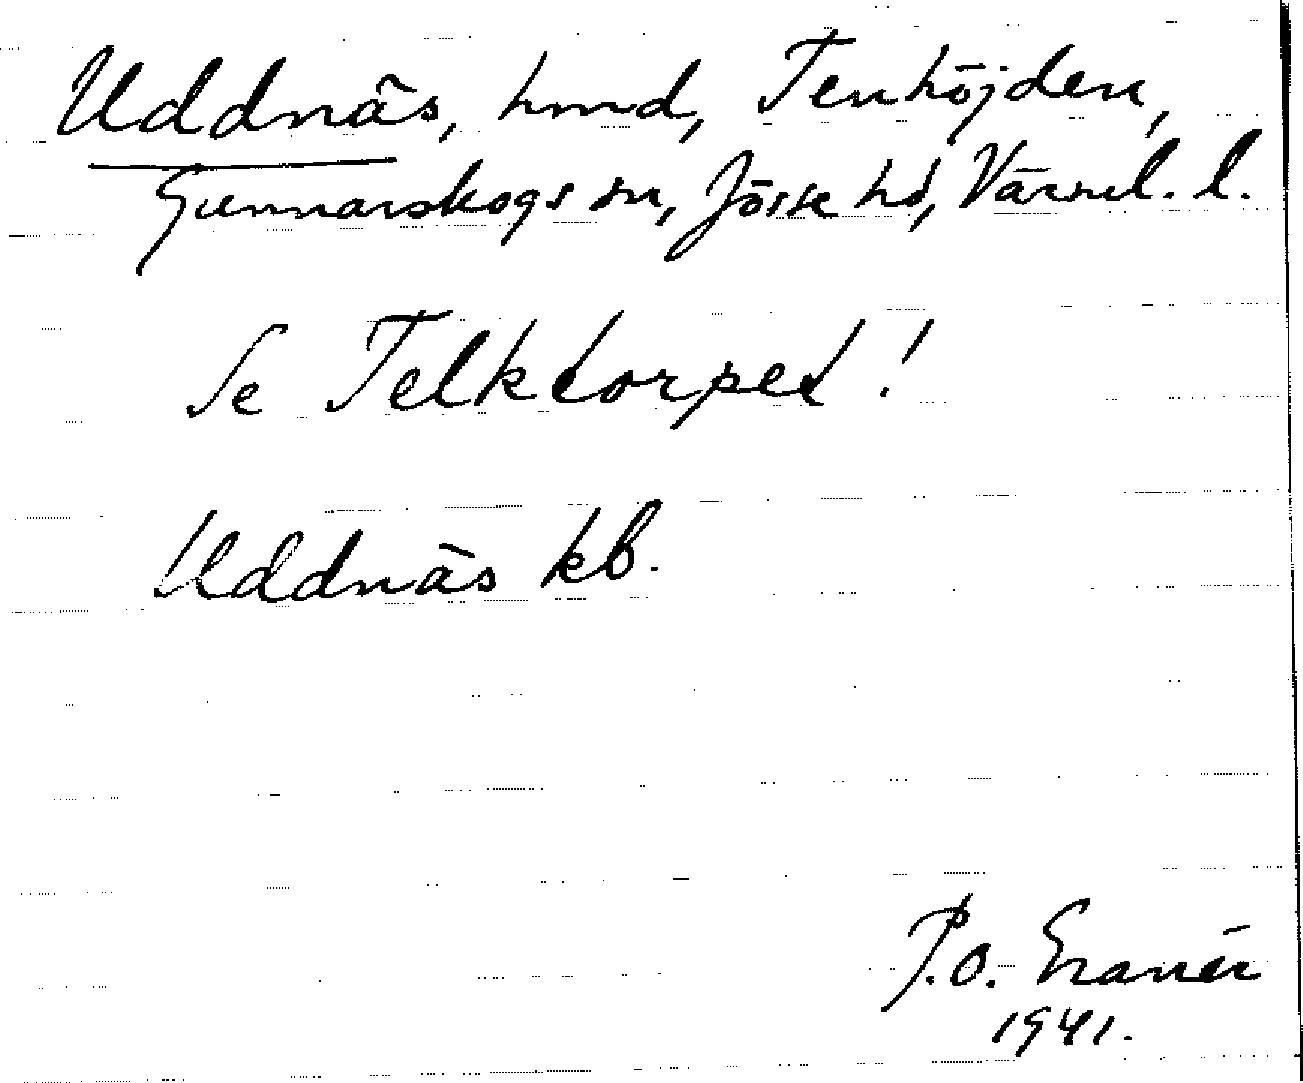 Uddnäs, hmd, Tenhöjden,
Gunnarskogs sn, Jösse hd, Värml. l.
Se Telktorpet!
Uddnäs kb.
P.O. Eranér
1941.